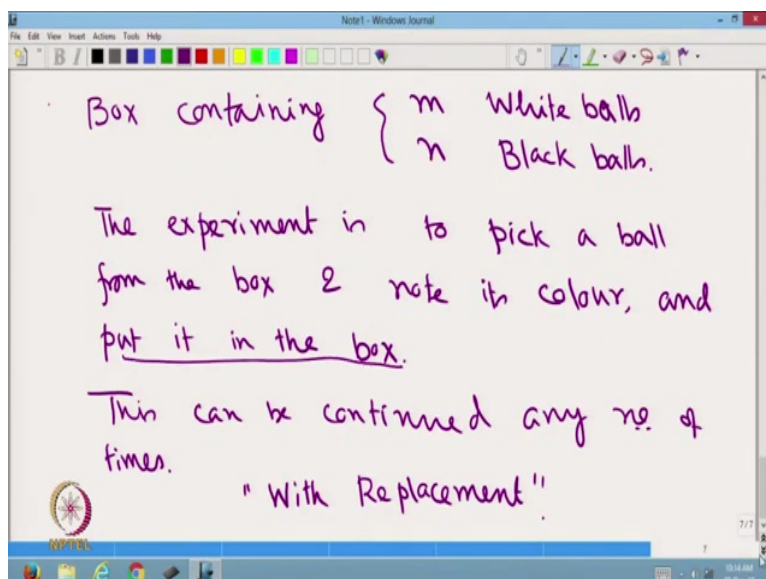 Note1 - Windows Journal
File Edit View Insert Actions Tools Help
Box containing { m White balls
n Black balls.
The experiment is to pick a ball
from the box & note its colour, and
put it in the box.
This can be continued any no. of
times.
"With Replacement"
NPTEL
7/7
7
10:14 AM